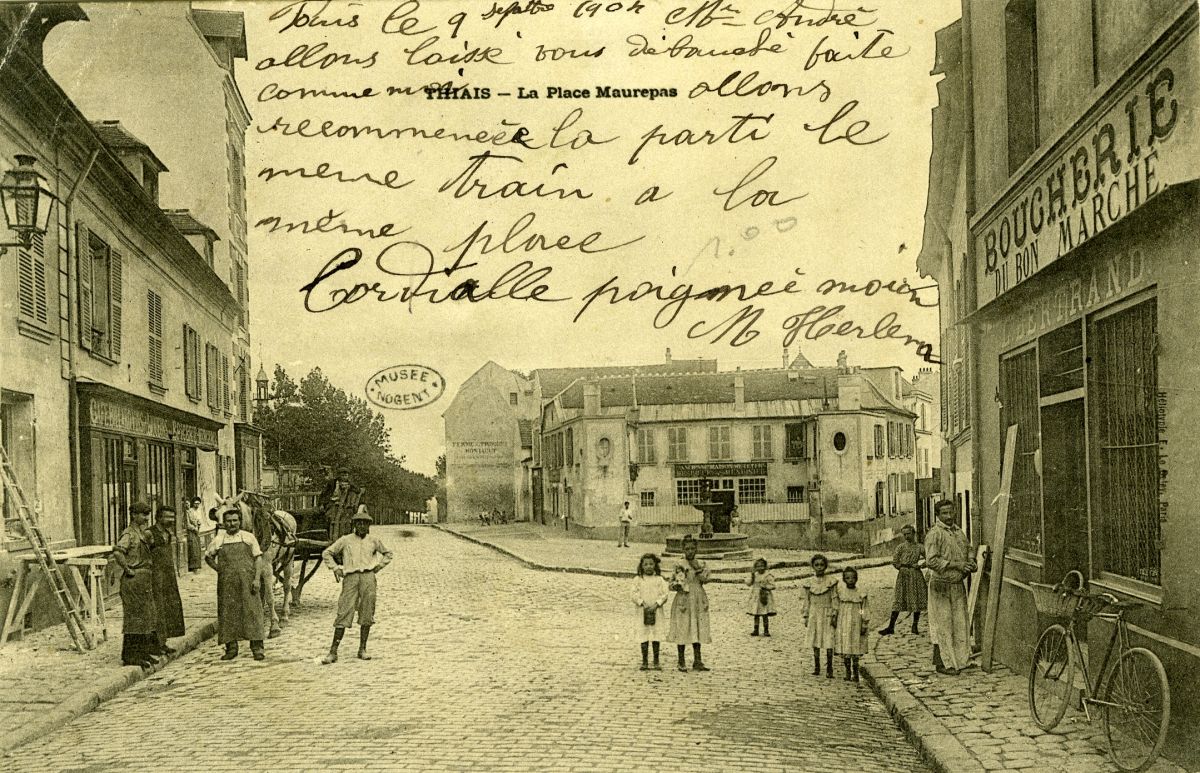 le 9 septbre 1904 Mr André
allons laissé vous débauché faite
comme moi allons
THIAIS – La Place Maurepas
recommencée la parti le
meme train a la
même place
Cordialle poignée
M
MUSÉE
NOGENT
BOUCHERIE
DU BON MARCHÉ.
BERTRAND
Héliotypie E. Le Deley, Paris